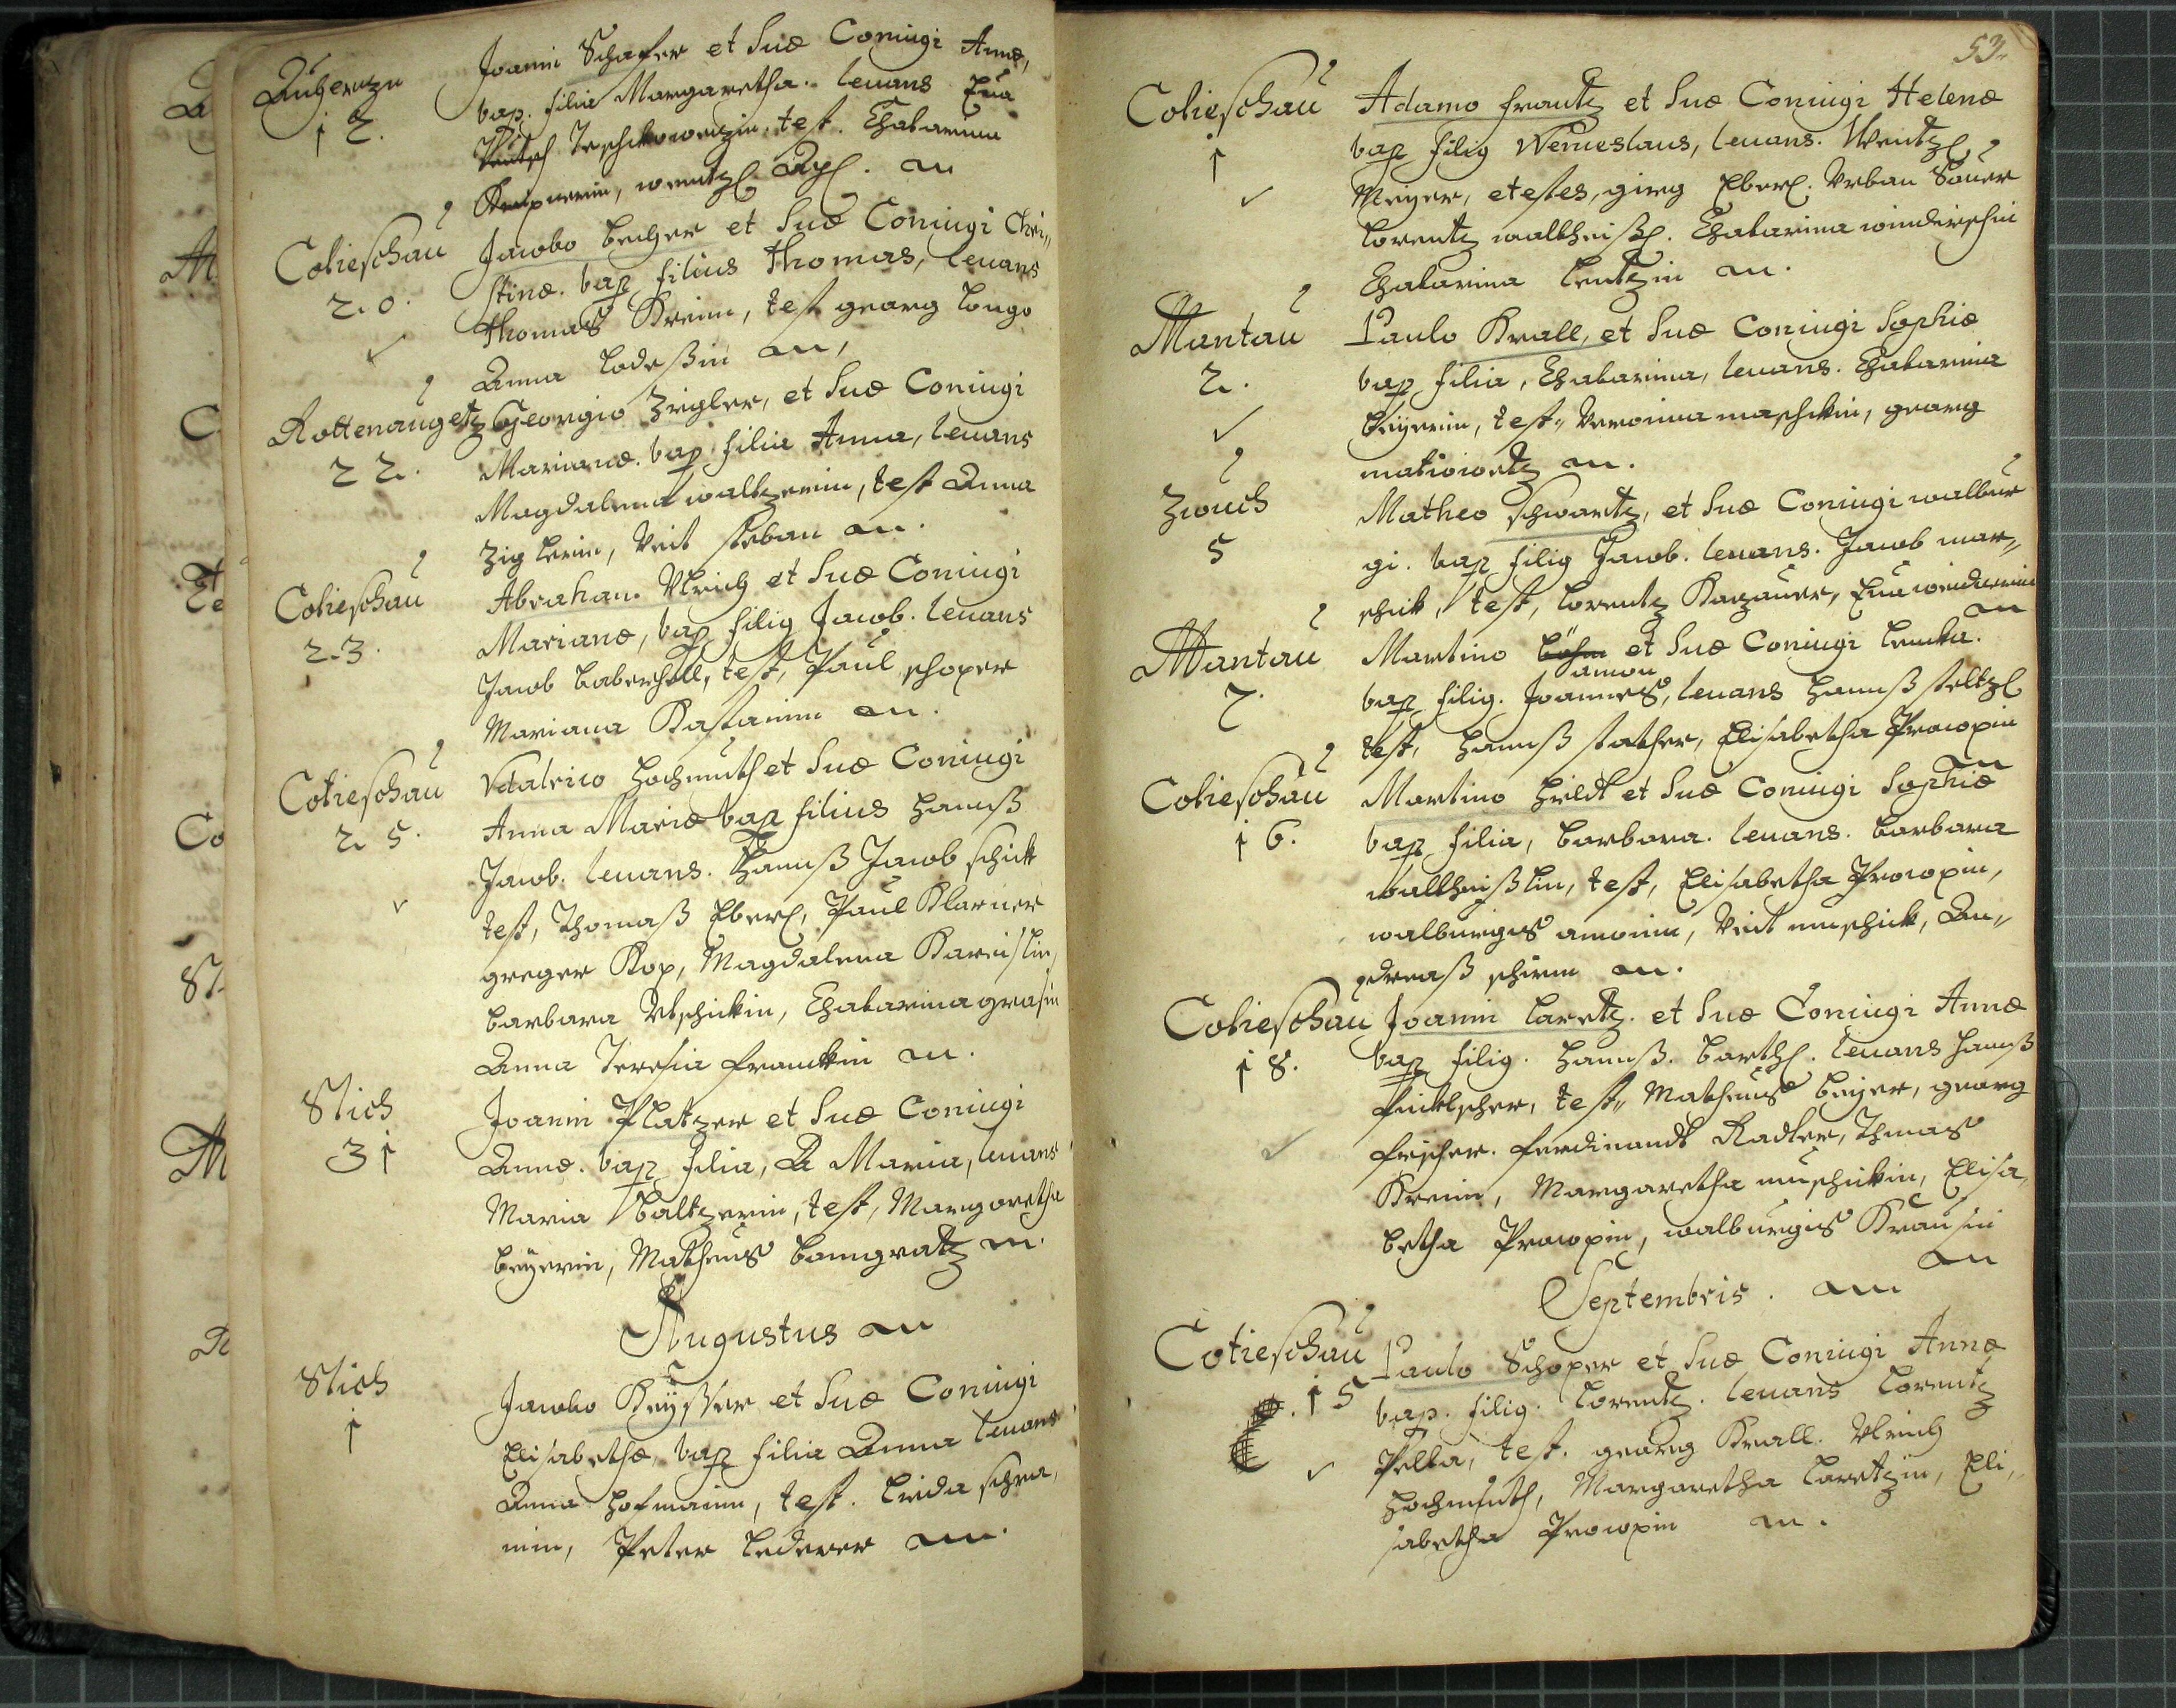 Joanni Schafer et Suæ Coniugi Annæ,
i2. bap. filia Margaretha. levans Eva
test. Chatarina
Cotieschau Jacobo Lecher et Suæ Coniugi Chri„
2.0. stinæ. bap filius Thomas, levans
Thomas Krenn, test georg Longo
Anna Lodeßin m,
Rottenaugetz Georgio Zigler, et Suæ Coniugi
22. Marianæ. bap filia Anna, levans
Magdalena waltzerin, test Anna
Ziglerin, Veit steban m.
Cotieschau Abraham. Vlrich et Suæ Coniugi
2.3. Marianæ, bap filig Jacob. levans
Jacob Laberholl, test, Paul schoper
Mariana m.
Cotieschau Vdalrico Hochmuth et Suæ Coniugi
25. Anna Mariæ bap filius Hannß
Jacob. levans. Hannß Jacob schick
test, Thomaß Eberl, Paul Klarner
greger Kop, Magdalena
barbara Chatarina grasin
Anna Teresia Franckin m.
Stich Joanni Platzer et Suæ Coniugi
3i Annæ. bap filia, A Maria, levans
Maria baltzerin, test, Margaretha
beyerin, Matheus baumgratz m.
Augustus m
Stich Jacobo Keysser et Suæ Coniugi
i Elisabethæ, bap filia Anna levans
Anna Hofmanin, test.
nin, Peter Lederer m.
53.
Cotieschau Adamo frantz et Suæ Coniugi Helenæ
i bap filig Wenceslaus, levans. Wentzl
Meyer, etestes, girg Eberl. Vrban Sauer
Lorentz waltheißl. Chatarina
Chatarina Lentzin m.
Mantau Paulo Krall, et Suæ Coniugi Sophiæ
2. bap filia, Chatarina, levans. Chatarina
beyerin, test„ Veronica maschkin, georg
matiowetz m.
Zwuch Matheo schwartz, et Suæ Coniugi walbur
5 gi. bap filig Jacob. levans. Jacob mar„
schick, test, Lorentz Kazauer, Eva
m
Mantau Martino Böhm et Suæ Coniugi Lenka.
amon
7. bap filig. Joannes, levans Hannß steltzl
test, Hannß stather, Elisabetha Procopin
m
Cotieschau Martino Heldt et Suæ Coniugi Sophiæ
i6. bap filia, barbara. levans. barbara
waltheißlin, test, Elisabetha Procopin,
walburgis amonin, Veit muschick, An„
dreaß schirm m.
Cotieschau Joanni Laretz. et Suæ Coniugi Annæ
i8. bap filig. Hannß. barthl. levans Hannß
test„ Matheus beyer, georg
fischer. ferdinandt Radler, Thmas
Krenn, Margaretha muschickin, Elisa„
betha Procopin, walburgis Krausin
m
Septembris. m
Cotieschau Paulo Schoper et Suæ Coniugi Annæ
.i5 bap. filig. Lorentz. levans Lorentz
Pelka, test. georg Krall. Vlrich
Hochmuth, Margaretha Laretzin, Eli„
sabetha Procopin m.